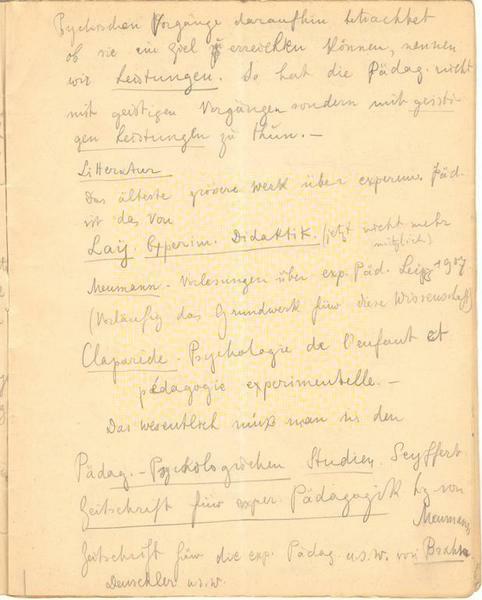 Psychischen Vorgänge daraufhin betrachtet
ob sie ein Ziel erreichen können, nennen
wir Leistungen. So hat die Pädag. nicht
mit geistigen Vorgängen sondern mit geisti-
gen Leistungen zu thun. —
Litteratur
Das älteste grössere Werk über experim. Päd.
ist das von
Lay. Experim. Didaktik. (jetzt nicht mehr
möglich)
Meumann. Vorlesungen über exp. Päd. Leipz 1907
(Vorläufig das Grundwerk für diese Wissenschaft)
Claparède. Psychologie de l'enfant et
pédagogie experimentelle. —
Das wesentlich muss man in den
Pädag.-Psychologischen Studien. Seyffert
Zeitschrift für exper. Pädagogik hg von
Meumann
Zeitschrift für die exp. Pädag. u.s.w. von Brahn
Deuchler u.s.w.